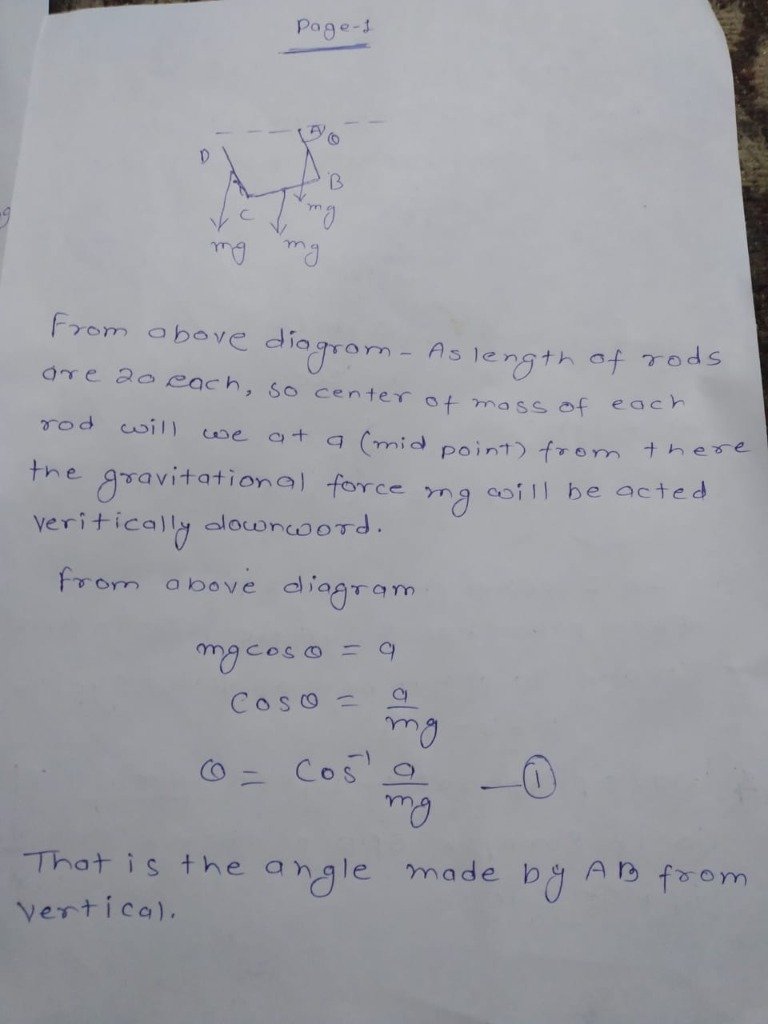 Page-1
A
θ
D
B
C
mg
mg
mg
From above diagram - As length of rods
are 2a each, so center of mass of each
rod will we at a (mid point) from there
the gravitational force mg will be acted
veritically downword.
from above diagram
mg cos θ = a
cos θ = a/mg
θ = Cos⁻¹ a/mg —①
That is the angle made by AB from
vertical.